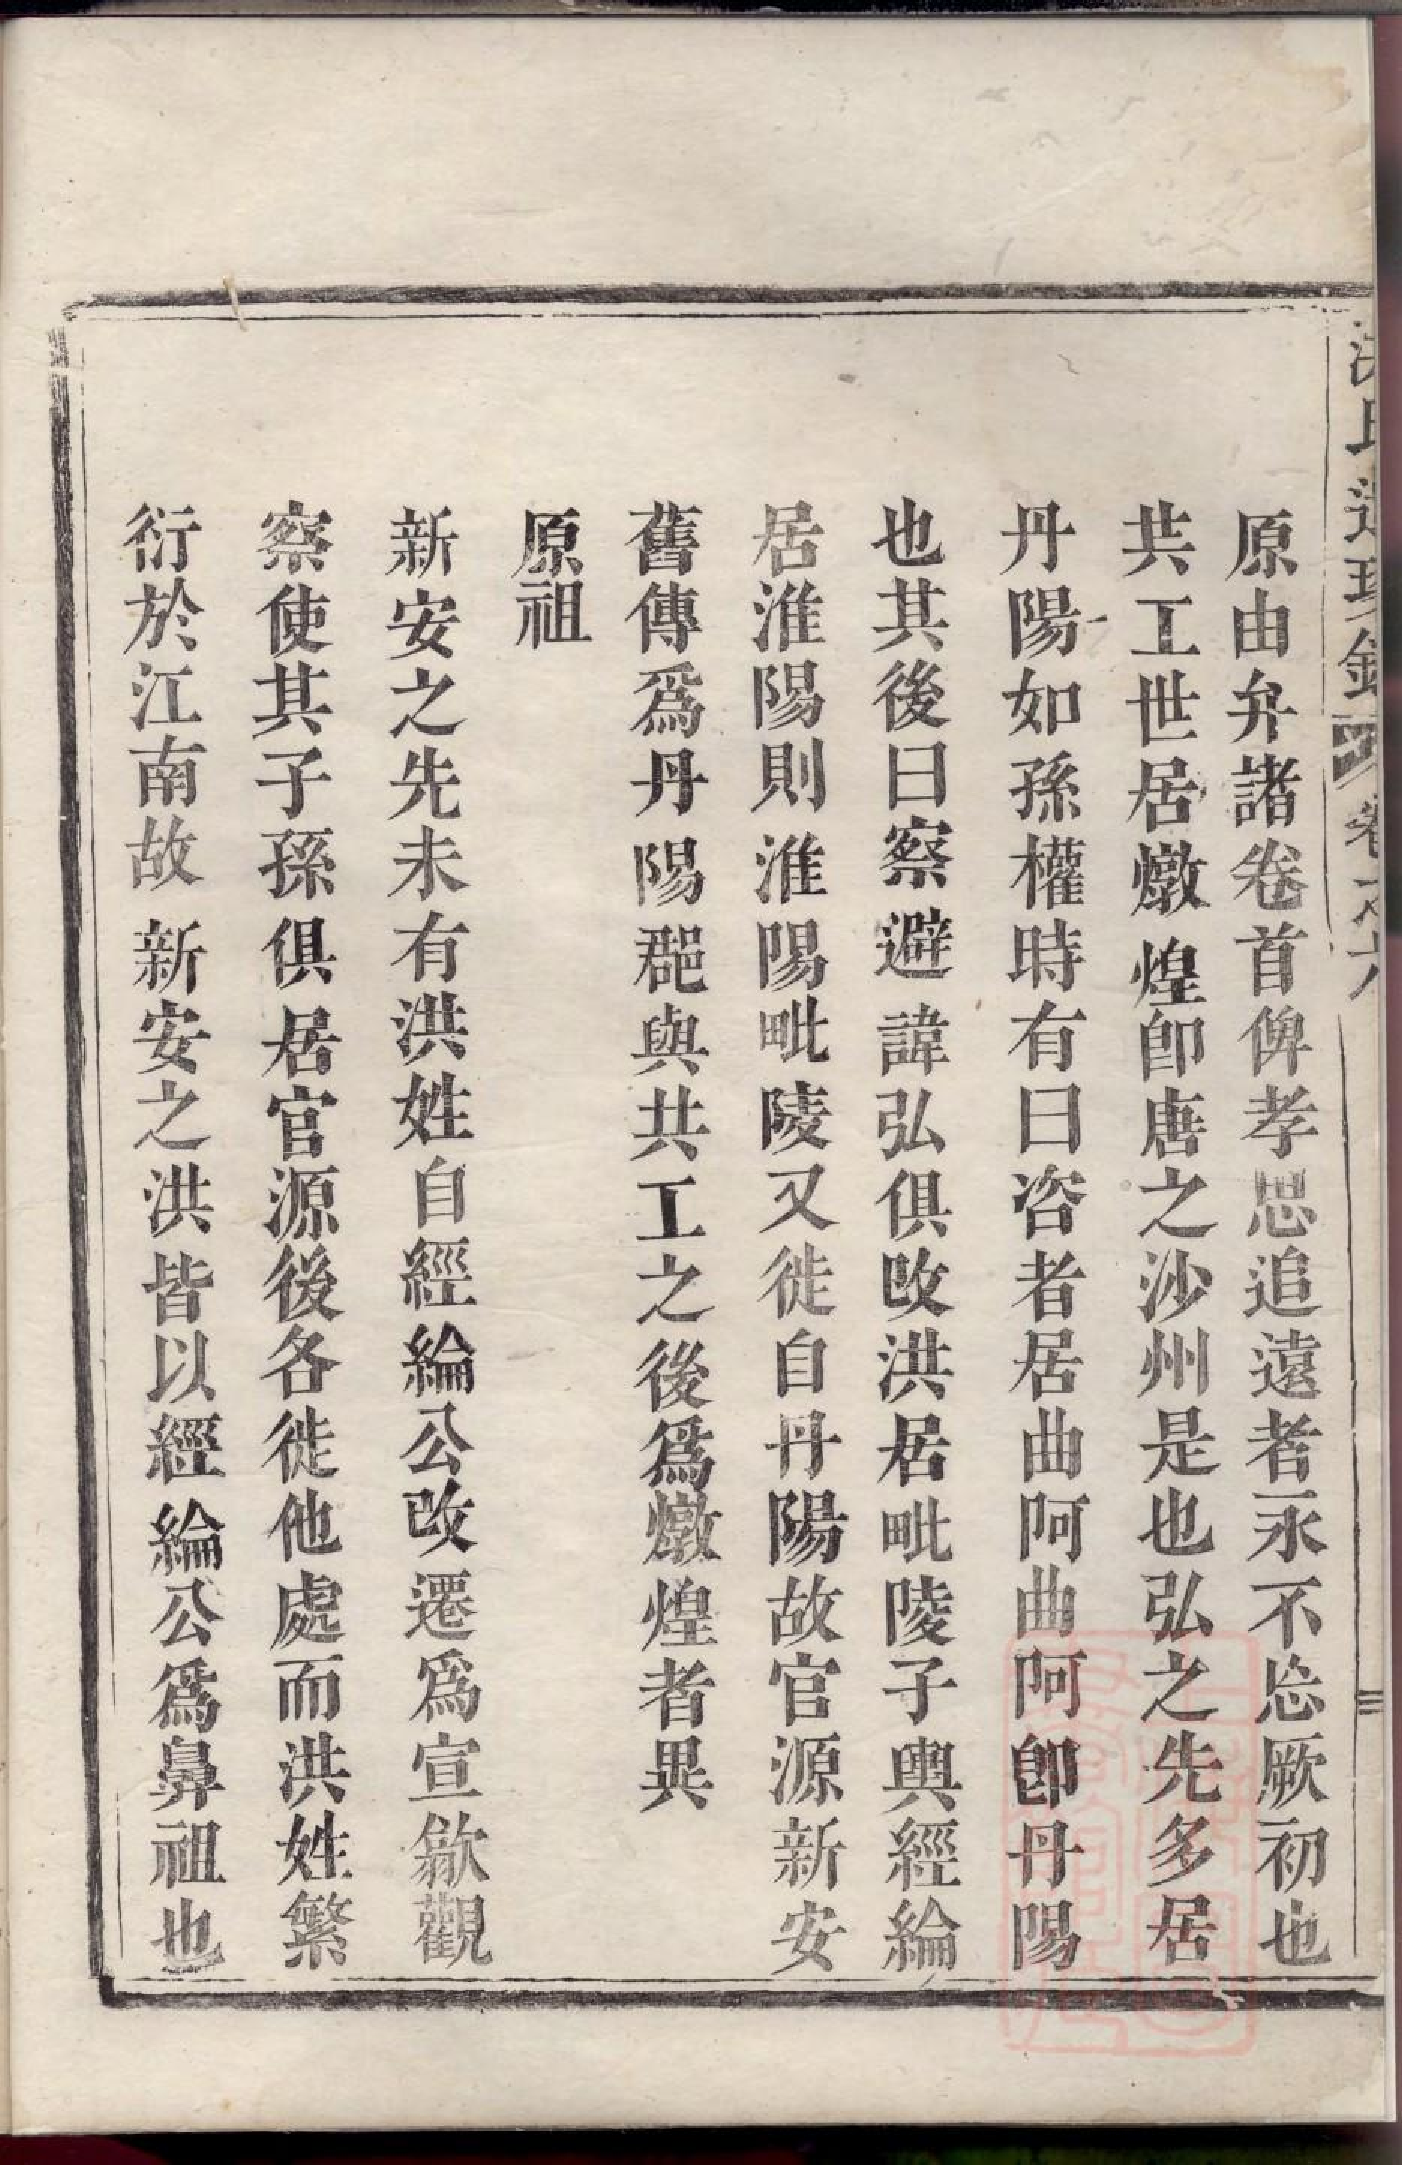 原由弁諸卷首俾孝思追遠者永不忘厥初也
共工世居燉煌卽唐之沙州是也弘之先多居
丹陽如孫權時有曰咨者居曲阿曲阿卽丹陽
也其後曰察避諱弘俱改洪居毗陵子輿經綸
居淮陽則淮陽毗陵又徙自丹陽故官源新安
舊傳爲丹陽郡與共工之後爲燉煌者異
原祖
新安之先未有洪姓自經綸公改遷爲宣歙觀
察使其子孫俱居官源後各徙他處而洪姓繁
衍於江南故新安之洪皆以經綸公爲鼻祖也